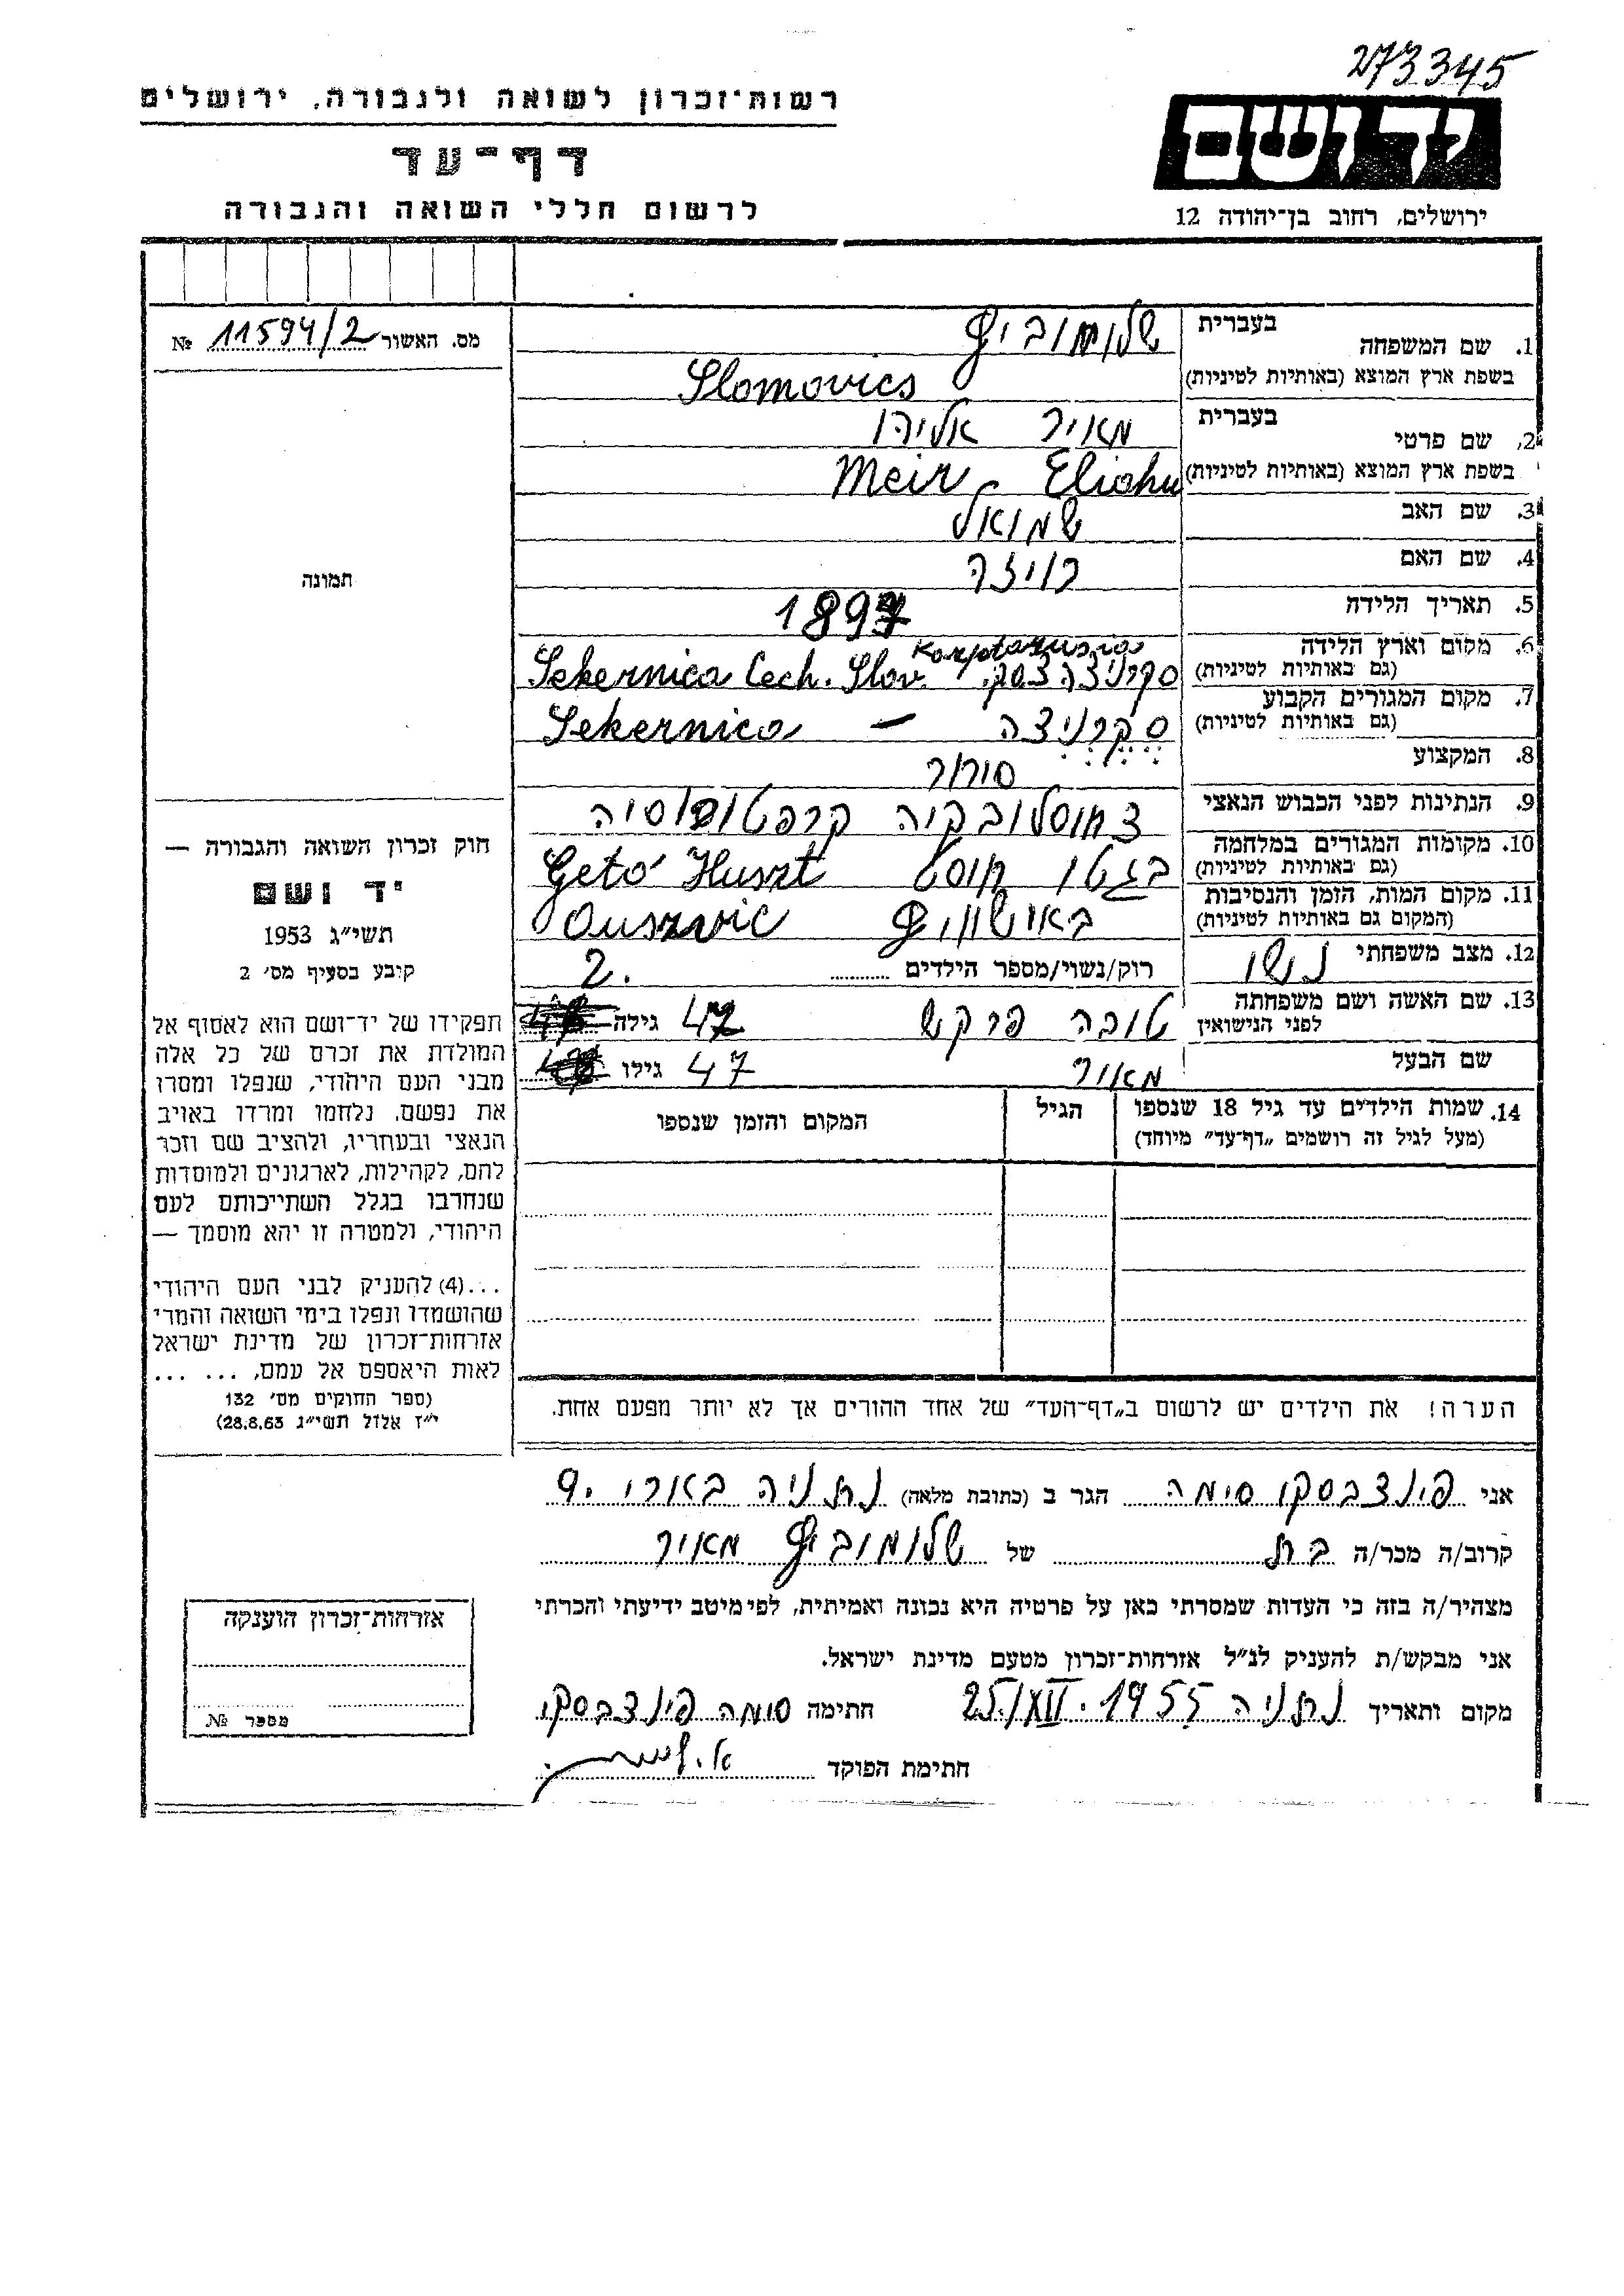 273345
יד ושם
ירושלים, רחוב בן־יהודה 12
רשות־זכרון לשואה ולגבורה, ירושלים
דף־עד
לרשום חללי השואה והגבורה
מס. האשור 11594/2 №
תמונה
חוק זכרון השואה והגבורה —
יד ושם
תשי״ג 1953
קובע בסעיף מס׳ 2
תפקידו של יד־ושם הוא לאסוף אל
המולדת את זכרם של כל אלה
מבני העם היהודי, שנפלו ומסרו
את נפשם, נלחמו ומרדו באויב
הנאצי ובעחריו, ולהציב שם וזכר
להם, לקהילות, לארגונים ולמוסדות
שנחרבו בגלל השתייכותם לעם
היהודי, ולמטרה זו יהא מוסמך —
...(4) להעניק לבני העם היהודי
שהושמדו ונפלו בימי השואה והמרי
אזרחות־זכרון של מדינת ישראל
לאות היאספם אל עמם, ... ...
(ספר החוקים מס׳ 132
י״ז אלול תשי״ג 28.8.53)
1. שם המשפחה בעברית שלומוביץ
בשפת ארץ המוצא (באותיות לטיניות) Slomovics
2. שם פרטי בעברית מאיר אליהו
בשפת ארץ המוצא (באותיות לטיניות) Meir Eliahu
3. שם האב שמואל
4. שם האם רויזה
5. תאריך הלידה 1897
6. מקום וארץ הלידה Karptarusia
(גם באותיות לטיניות) סקרניצה Sekernica Cech. Slov.
7. מקום המגורים הקבוע
(גם באותיות לטיניות) סקרניצה – Sekernica
8. המקצוע סוחר
9. הנתינות לפני הכבוש הנאצי צכוסלובקיה קרפטורוסיה
10. מקומות המגורים במלחמה
(גם באותיות לטיניות) בגטו חוסט Getó Huszt
11. מקום המות, הזמן והנסיבות
(המקום גם באותיות לטיניות) באושוויץ Ouszvic
12. מצב משפחתי נשוי רוק/נשוי/מספר הילדים 2.
13. שם האשה ושם משפחתה
לפני הנישואין טובה פרקש גילה 47
שם הבעל מאיר גילו 47
14. שמות הילדים עד גיל 18 שנספו הגיל המקום והזמן שנספו
(מעל לגיל זה רושמים „דף־עד״ מיוחד)
הערה! את הילדים יש לרשום ב„דף־העד״ של אחד ההורים אך לא יותר מפעם אחת.
אני פינצבסקו סימה הגר ב (כתובת מלאה) נתניה בארי 9.
קרוב/ה מכר/ה בת של שלומוביץ מאיר
מצהיר/ה בזה כי העדות שמסרתי כאן על פרטיה היא נכונה ואמיתית, לפי מיטב ידיעתי והכרתי
אני מבקש/ת להעניק לנ״ל אזרחות־זכרון מטעם מדינת ישראל.
מקום ותאריך נתניה 25/XII. 1955 חתימה סימה פינצבסקו
חתימת הפוקד
אזרחות־זכרון הוענקה
מספר №